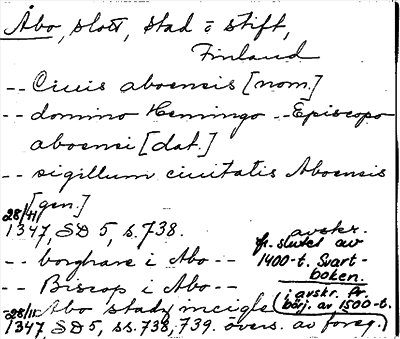 Åbo, slott, stad o stift,
Finland
-- Ciuis aboensis [nom.]
-- domino Hemingo -- Episcopo
aboensi [dat.]
-- sigillum ciuitatis Aboensis
[gen.]
28/11
1347, SD 5, s. 738.
avskr.
fr. slutet av
1400-t. Svart-
boken.
-- borghare i Abo --
-- Biscop i Abo --
-- Abo stadz incigle
(i avskr. fr.
börj. av 1500-t.)
28/11
1347, SD 5, ss. 738, 739. övers. av föreg.)